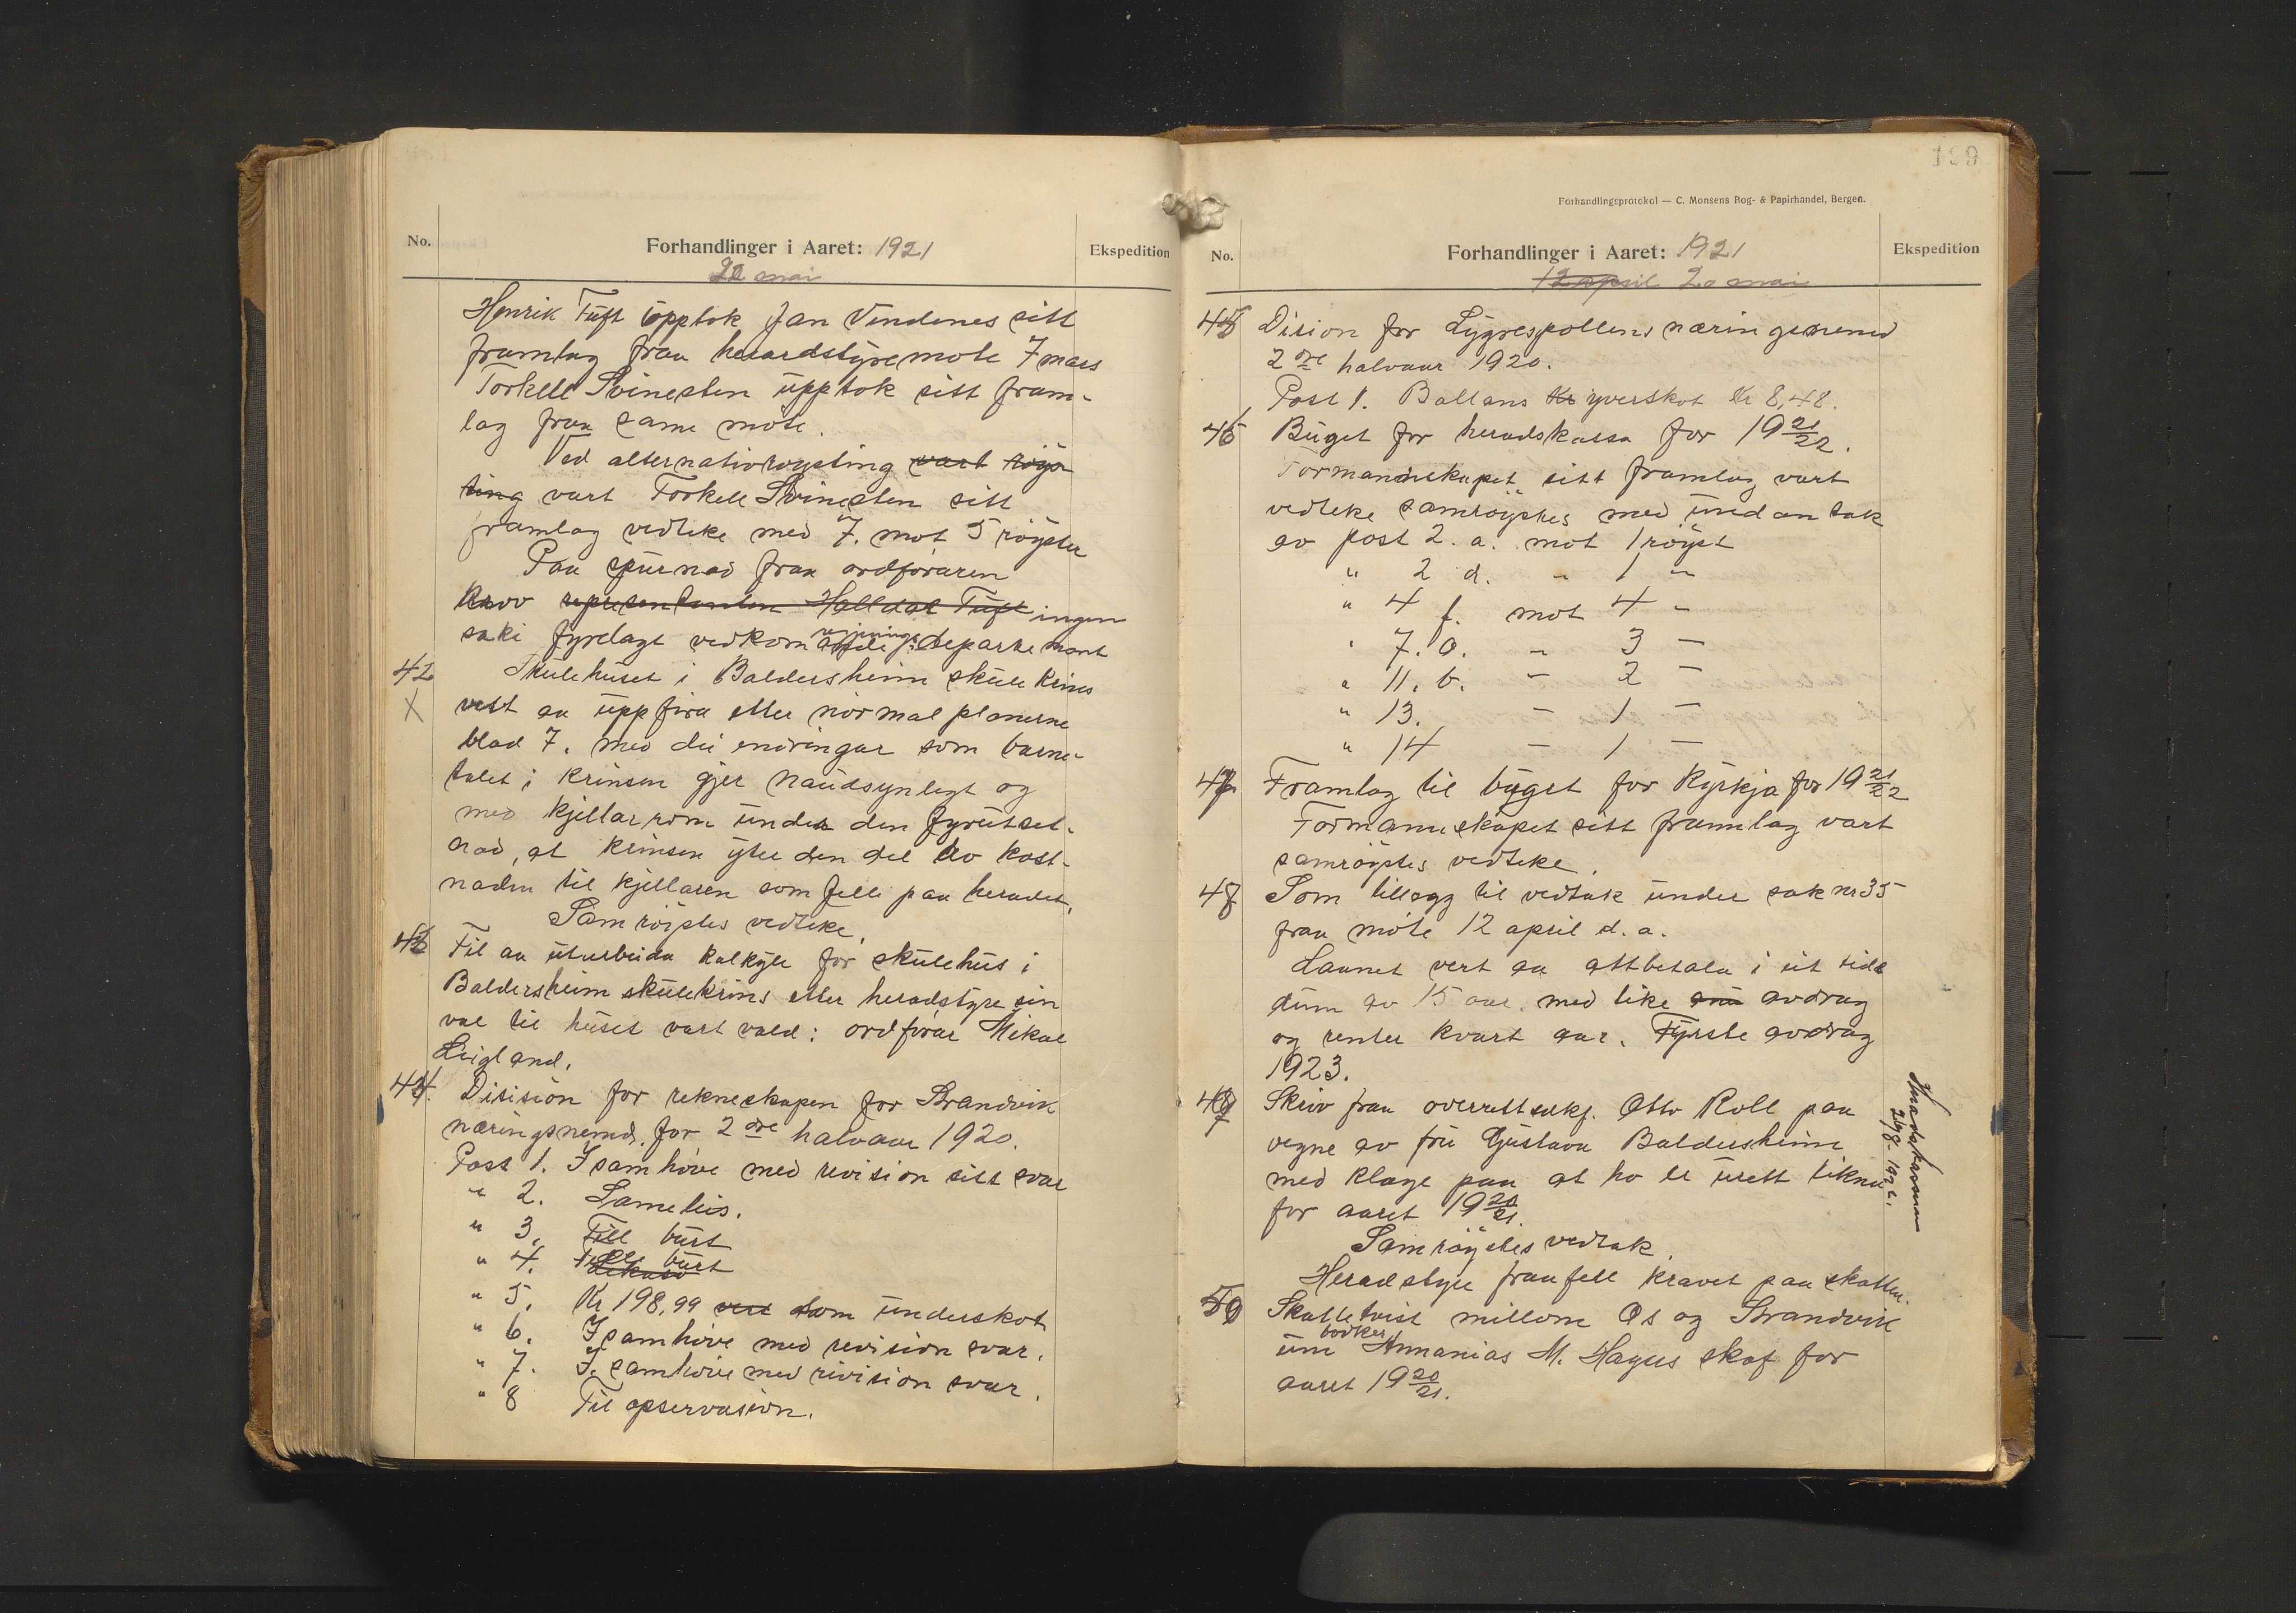 No.
Forhandlinger i Aaret: 1921
Ekspedition
20 mai
Henrik Tuft upptok Jan Vindenes sitt
framlag fraa heradstyremöte 7 mars
Torkell Svinesten upptok sitt fram-
lag fraa same möte.
Ved alternativröysting vart röys
ting vart Torkell Svinesten sitt
framlag vedteke med 7. mot 5 röyster
Paa spurnad fraa ordföraren
representanten Halldor Tuft ingen
saki fyrelagt vedkom regjerings departement
42 Skulehuset i Baldersheim skulekrins
X vert aa uppföra etter normalplanerne
blad 7. med dei endringar som barne-
talet i krinsen gjer naudsynlegt og
med kjellarrom under den fyrutset-
nad, at krinsen yter den del av kost-
naden til kjellaren som fell paa heradet.
Samröystes vedteke.
43 Til aa utarbeida kalkyle for skulehus i
Baldersheim skulekrins etter heradstyre sin
val til huset vart vald: ordförar Mikal
Leigland.
44. Disision for rekneskapen for Strandvik
næringsnemd. for 2dre halvaar 1920.
Post 1. I samhöve med revision sitt svar
" 2. Sameleis.
" 3. Fell burt
" 4. Fell burt
" 5. Kr 198,99 vert som underskot
" 6. I samhöve med revision svar.
" 7. I samhöve med rivision svar.
" 8 Til opservasion.
199
Forhandlingsprotokol — C. Monsens Bog- & Papirhandel, Bergen.
No.
Forhandlinger i Aaret: 1921
Ekspedition
12 april 20 mai
45 Dision for Lygrespollens næringsnemd
2dre halvaar 1920.
Post 1. Ballans Kr yverskot Kr 8,48.
46 Buget for heradskassa for 19 21/22.
Formannskapet sitt framlag vart
vedteke samröystes med undantak
av post 2. a. mot 1 röyst
" 2 d. " 1 "
" 4 f. mot 4 "
" 7. a. " 3 —
" 11. b. — 2 —
" 13. — 1 —
" 14 — 1 —
47 Framlag til buget for Kyrkja for 19 21/22
Formannskapet sitt framlag vart
samröystes vedteke.
48 Som tillegg til vedtak under sak nr 35
fraa möte 12 april d. a.
Laanet vert aa attbetala i eit tids
rum av 15 aar med like avdrag
og renter kvart aar. Fyrste avdrag
1923.
49 Skriv fraa overrettsakf. Otto Roll paa
vegne av fru Gustava Baldersheim
med klage paa at ho er urett likna
for aaret 19 20/21.
Samröystes vedtak.
Heradstyre fraafell kravet paa skatten.
50 Skattetvist millom Os og Strandvik
um bödker Annanias M. Hagus skat for
aaret 19 20/21.